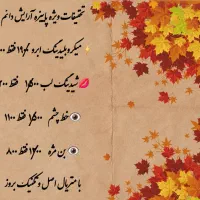 تخفیفات ویژه پاییزه آرایش دائم
میکروبلیدینگ ابرو ۱۹۰۰ فقط
شیدینگ لب ۱۶۰۰ فقط
خط چشم ۱۵۰۰ فقط ۱۱۰۰
بن مژه ۱۲۰۰ فقط ۸۰۰
با متریال اصل و تکنیک بروز